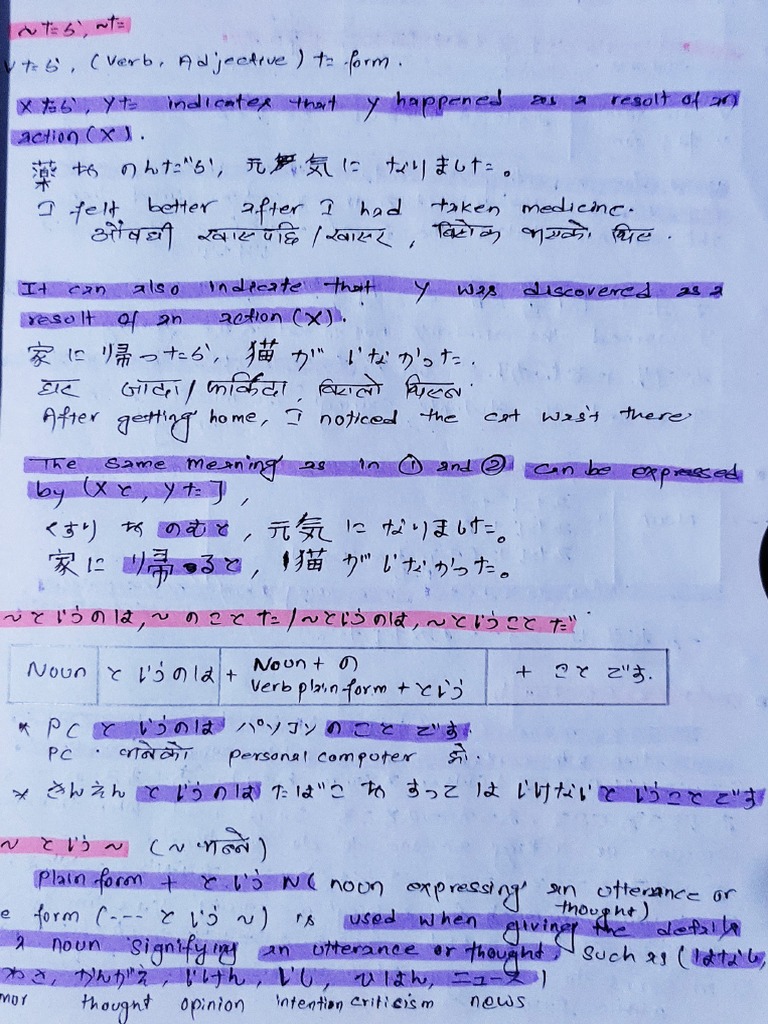 ~たら, ~た
Vたら, (Verb, Adjective) た form.
Xたら, Yた indicates that y happened as a result of an
action (X).
薬 を のんだら, 元気に なりました。
I felt better after I had taken medicine.
औषधी खाएपछि / खाएर, भएको थिए.
It can also indicate that y was discovered as a
result of an action (X).
家に 帰ったら, 猫 が いなかった.
घर जादा / फर्किदा, बिरालो थिएन
After getting home, I noticed the cat wasn't there
The same meaning as in ① and ② can be expressed
by (Xと, Yた],
くすり を のむと, 元気に なりました。
家に 帰ると, 猫 が いなかった。
~というのは, ~のことだ / ~というのは, ~ということだ
Noun というのは + Noun + の + ことです.
Verb plain form + という
* PC というのは パソコン のことです.
PC भनेको personal computer हो.
* きんえん というのは たばこ を すって は いけない ということです
~という~ (~भन्ने)
Plain form + という N (noun expressing an utterance or
thought)
form (---という~) is used when giving the details
a noun signifying an utterance or thought, such as (はなし,
かんがえ, いけん, いし, ひはん, ニュース)
mor thought opinion intention criticism news